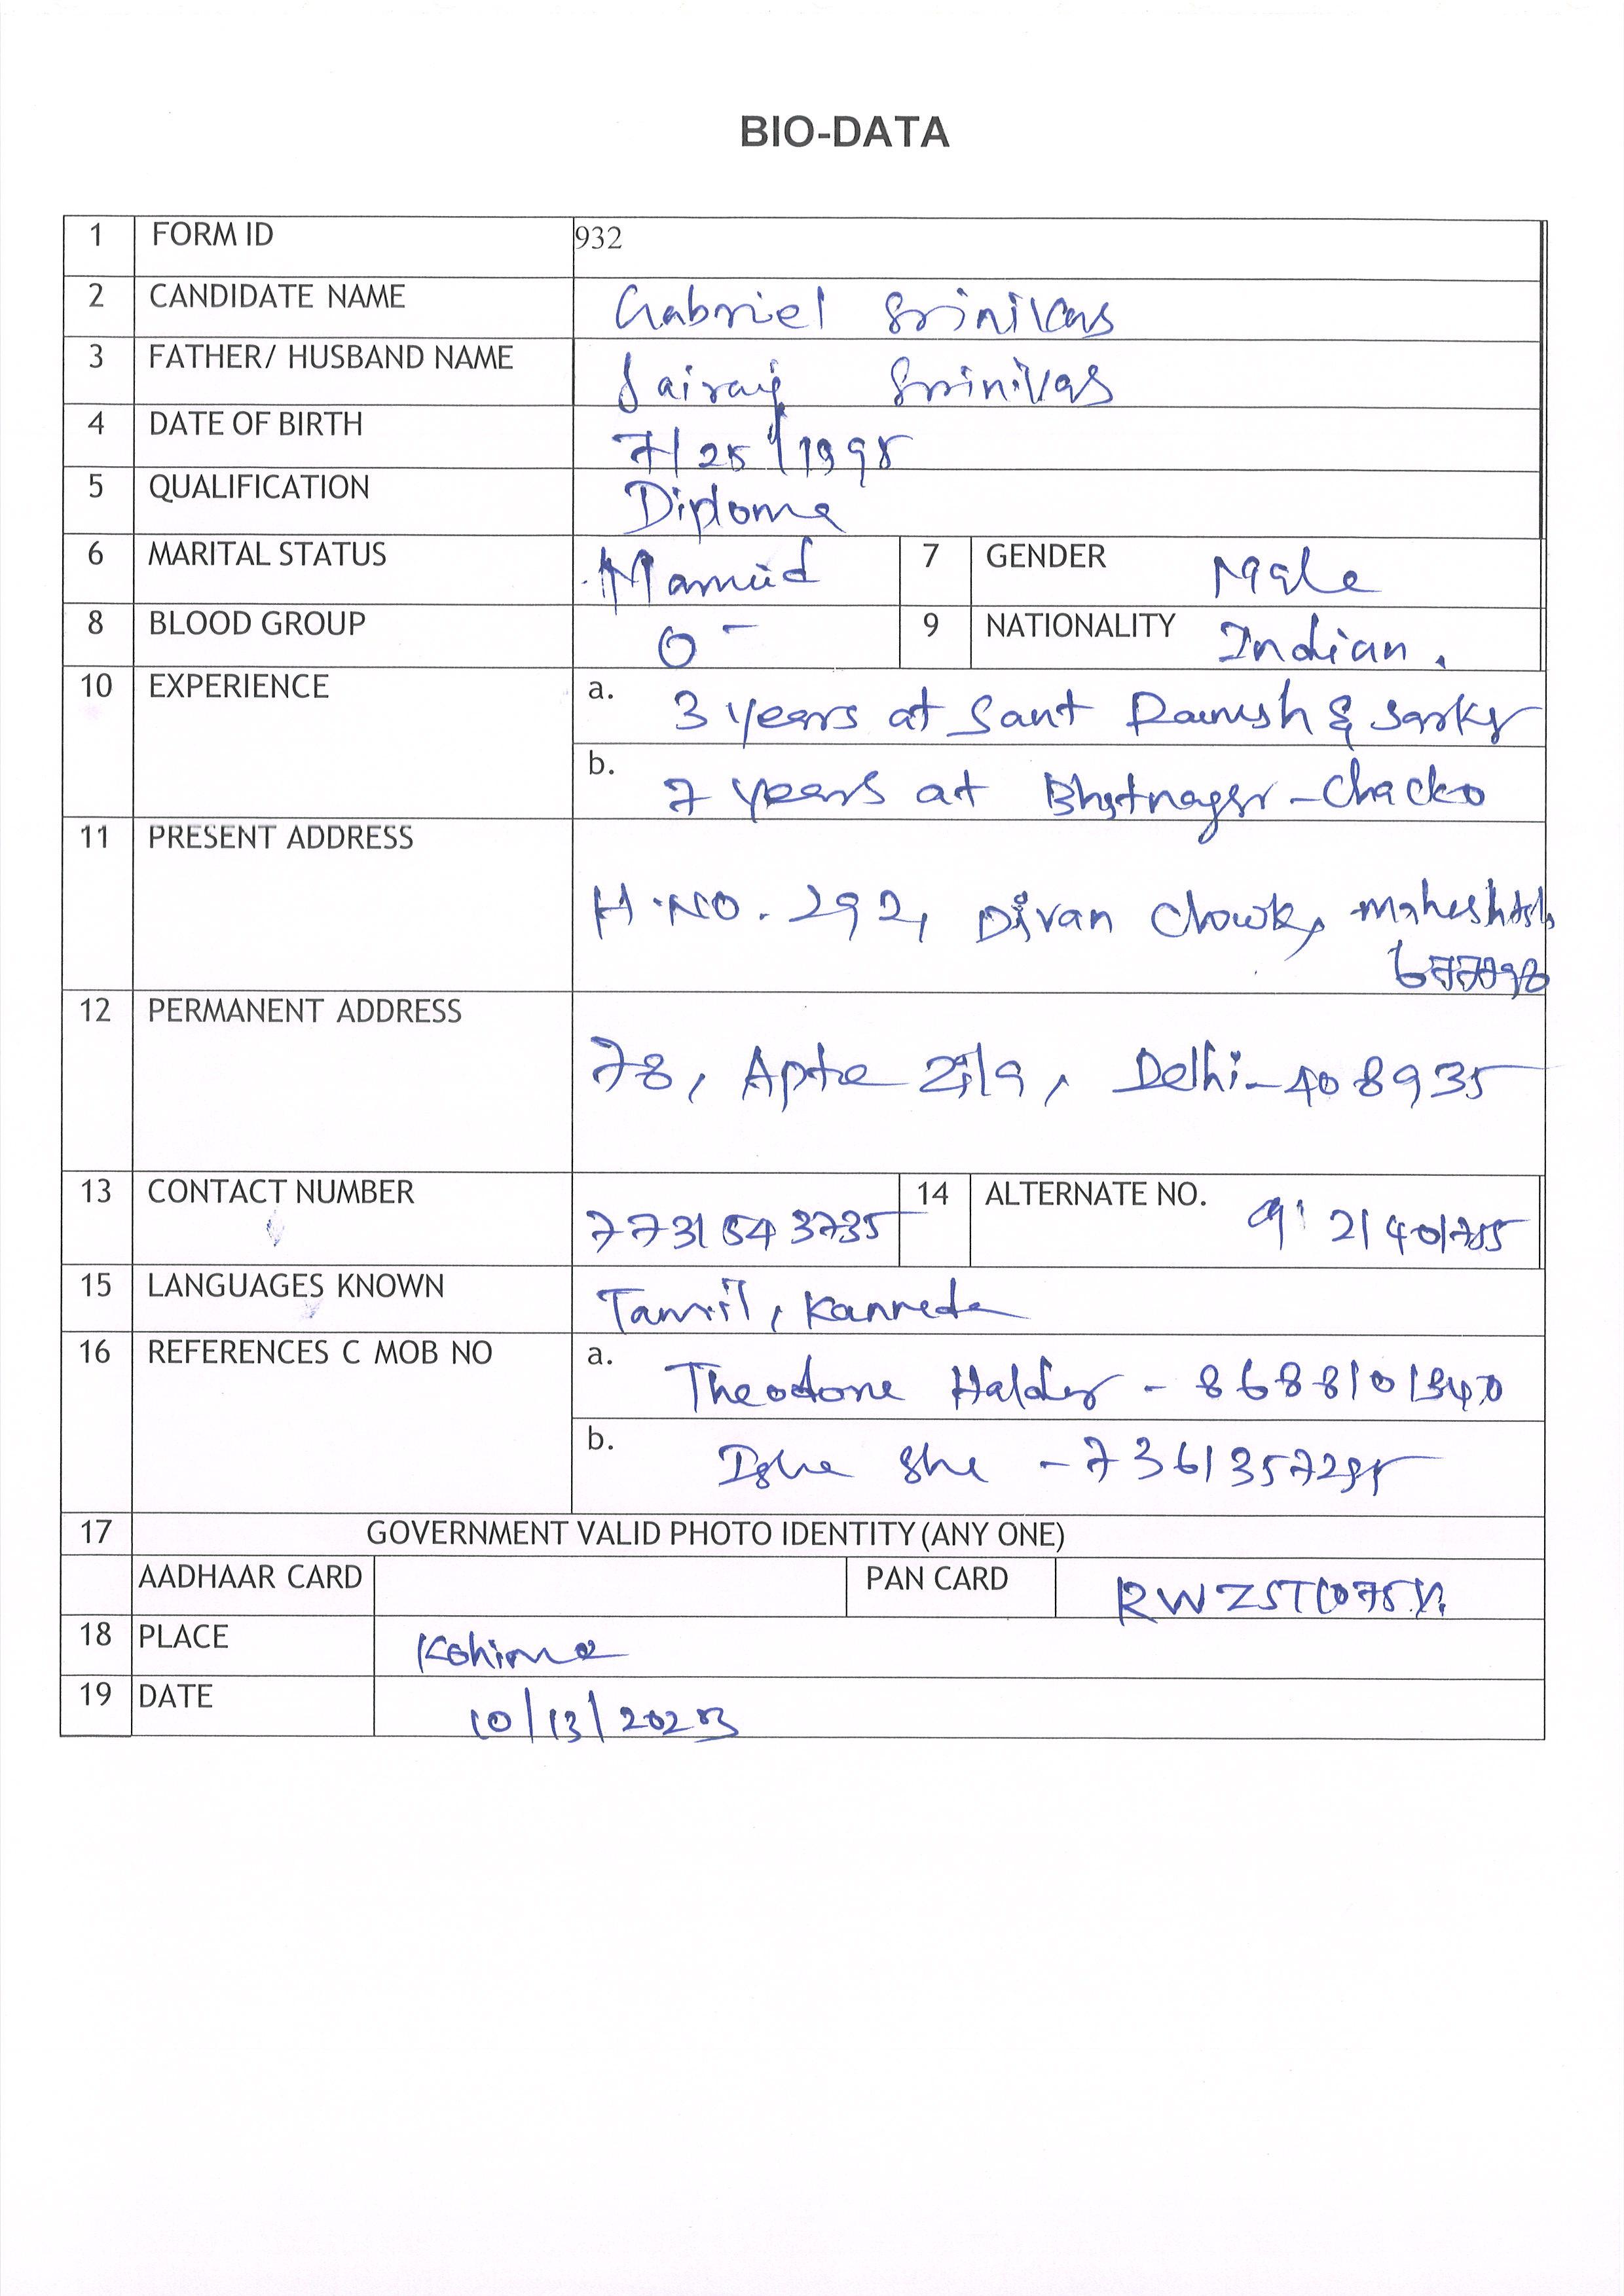 BIO-DATA
1 FORM ID 932
2 CANDIDATE NAME Gabriel Srinivas
3 FATHER/ HUSBAND NAME Sairaj Srinivas
4 DATE OF BIRTH 7/25/1998
5 QUALIFICATION Diploma
6 MARITAL STATUS Married 7 GENDER Male
8 BLOOD GROUP O- 9 NATIONALITY Indian.
10 EXPERIENCE a. 3 years at Sant &
b. 7 years at Bhatnagar-Chacko
11 PRESENT ADDRESS
H.NO. 292, Divan Chowk,
12 PERMANENT ADDRESS
78, Apte Zila, Delhi-408935
13 CONTACT NUMBER 7731543735 14 ALTERNATE NO.
15 LANGUAGES KNOWN Tamil, Kannada
16 REFERENCES C MOB NO a. Theodore Halder - 8688101340
b.
17 GOVERNMENT VALID PHOTO IDENTITY (ANY ONE)
AADHAAR CARD PAN CARD
18 PLACE Kohima
19 DATE 10/13/2023